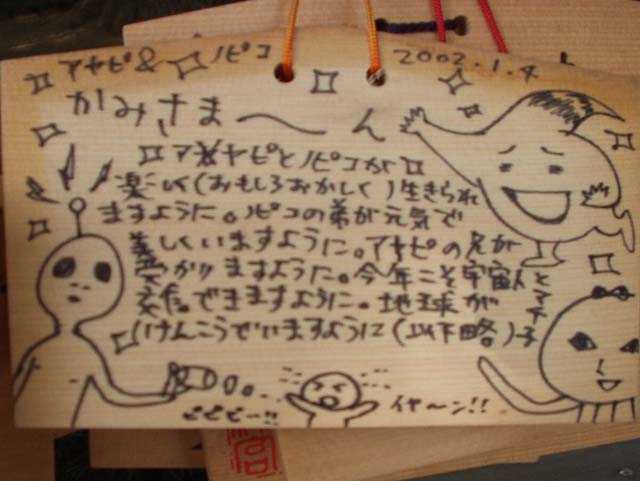 アヤピ&ノピコ 2002.1.4
かみさま〜ん
アヤピとノピコが
楽しく(おもしろおかしく)生きられ
ますように。ノピコの弟が元気で
美しくいますように。アヤピの兄が
受かりますように。今年こそ宇宙人と
交信できますように。地球が
けんこうでいますように(以下略)
ビビビー!!
イヤ〜ン!!